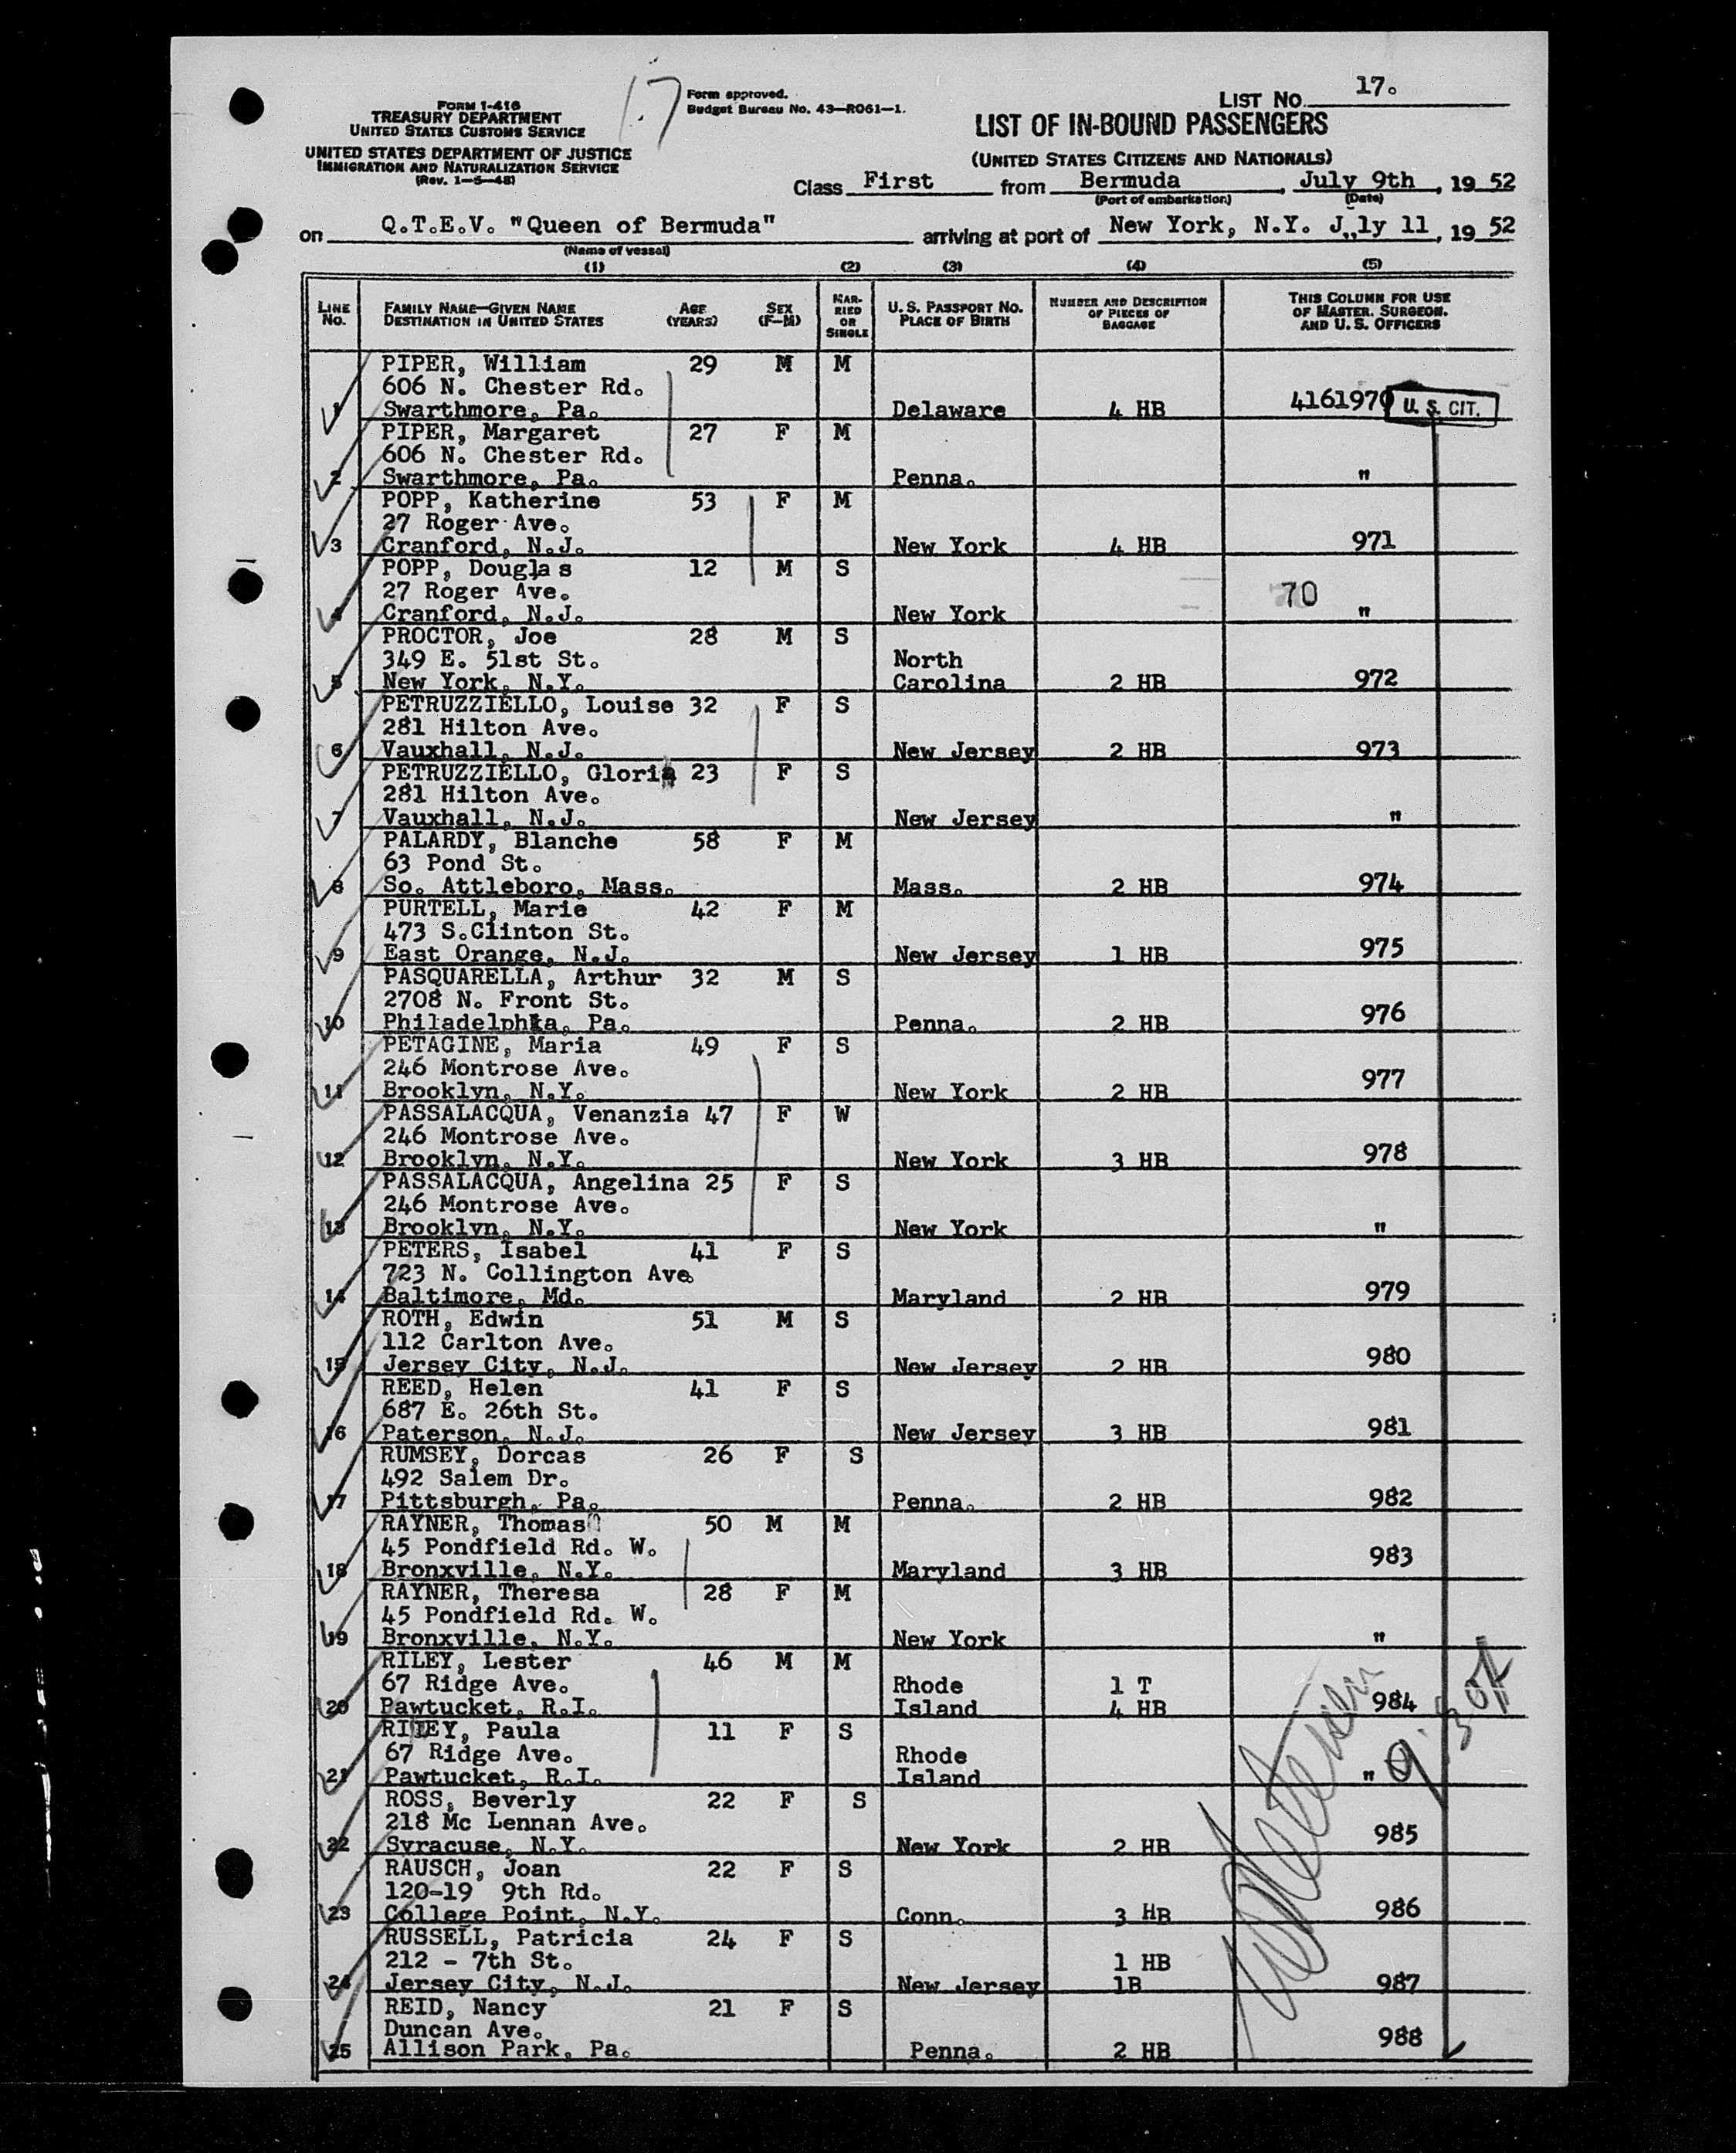 17
Form approved.
Budget Bureau No. 43—R061—1.
LIST No. 17.
FORM I-416
TREASURY DEPARTMENT
UNITED STATES CUSTOMS SERVICE
UNITED STATES DEPARTMENT OF JUSTICE
IMMIGRATION AND NATURALIZATION SERVICE
(Rev. 1—5—48)
LIST OF IN-BOUND PASSENGERS
(UNITED STATES CITIZENS AND NATIONALS)
Class First from Bermuda, July 9th, 19 52
(Port of embarkation) (Date)
on Q.T.E.V. "Queen of Bermuda" arriving at port of New York, N.Y. J,,ly 11, 19 52
(Name of vessel)
(1) (2) (3) (4) (5)
LINE No. FAMILY NAME—GIVEN NAME DESTINATION IN UNITED STATES AGE (YEARS) SEX (F—M) MARRIED OR SINGLE U. S. PASSPORT NO. PLACE OF BIRTH NUMBER AND DESCRIPTION OF PIECES OF BAGGAGE THIS COLUMN FOR USE OF MASTER, SURGEON, AND U. S. OFFICERS
PIPER, William 29 M M
606 N. Chester Rd.
1 Swarthmore, Pa. Delaware 4 HB 4161970 U. S. CIT.
PIPER, Margaret 27 F M
606 N. Chester Rd.
2 Swarthmore, Pa. Penna. "
POPP, Katherine 53 F M
27 Roger Ave.
3 Cranford, N.J. New York 4 HB 971
POPP, Douglas 12 M S
27 Roger Ave. 70
4 Cranford, N.J. New York "
PROCTOR, Joe 28 M S
349 E. 51st St. North
5 New York, N.Y. Carolina 2 HB 972
PETRUZZIELLO, Louise 32 F S
281 Hilton Ave.
6 Vauxhall, N.J. New Jersey 2 HB 973
PETRUZZIELLO, Gloria 23 F S
281 Hilton Ave.
7 Vauxhall, N.J. New Jersey "
PALARDY, Blanche 58 F M
63 Pond St.
8 So. Attleboro, Mass. Mass. 2 HB 974
PURTELL, Marie 42 F M
473 S.Clinton St.
9 East Orange, N.J. New Jersey 1 HB 975
PASQUARELLA, Arthur 32 M S
2708 N. Front St.
10 Philadelphia, Pa. Penna. 2 HB 976
PETAGINE, Maria 49 F S
246 Montrose Ave.
11 Brooklyn, N.Y. New York 2 HB 977
PASSALACQUA, Venanzia 47 F W
246 Montrose Ave.
12 Brooklyn, N.Y. New York 3 HB 978
PASSALACQUA, Angelina 25 F S
246 Montrose Ave.
13 Brooklyn, N.Y. New York "
PETERS, Isabel 41 F S
723 N. Collington Ave.
14 Baltimore, Md. Maryland 2 HB 979
ROTH, Edwin 51 M S
112 Carlton Ave.
15 Jersey City, N.J. New Jersey 2 HB 980
REED, Helen 41 F S
687 E. 26th St.
16 Paterson, N.J. New Jersey 3 HB 981
RUMSEY, Dorcas 26 F S
492 Salem Dr.
17 Pittsburgh, Pa. Penna. 2 HB 982
RAYNER, Thomas 50 M M
45 Pondfield Rd. W.
18 Bronxville, N.Y. Maryland 3 HB 983
RAYNER, Theresa 28 F M
45 Pondfield Rd. W.
19 Bronxville, N.Y. New York "
RILEY, Lester 46 M M
67 Ridge Ave. Rhode 1 T
20 Pawtucket, R.I. Island 4 HB 984
RILEY, Paula 11 F S
67 Ridge Ave. Rhode
21 Pawtucket, R.I. Island "
ROSS, Beverly 22 F S
218 Mc Lennan Ave.
22 Syracuse, N.Y. New York 2 HB 985
RAUSCH, Joan 22 F S
120-19 9th Rd.
23 College Point, N.Y. Conn. 3 HB 986
RUSSELL, Patricia 24 F S
212 - 7th St. 1 HB
24 Jersey City, N.J. New Jersey 1B 987
REID, Nancy 21 F S
Duncan Ave.
25 Allison Park, Pa. Penna. 2 HB 988